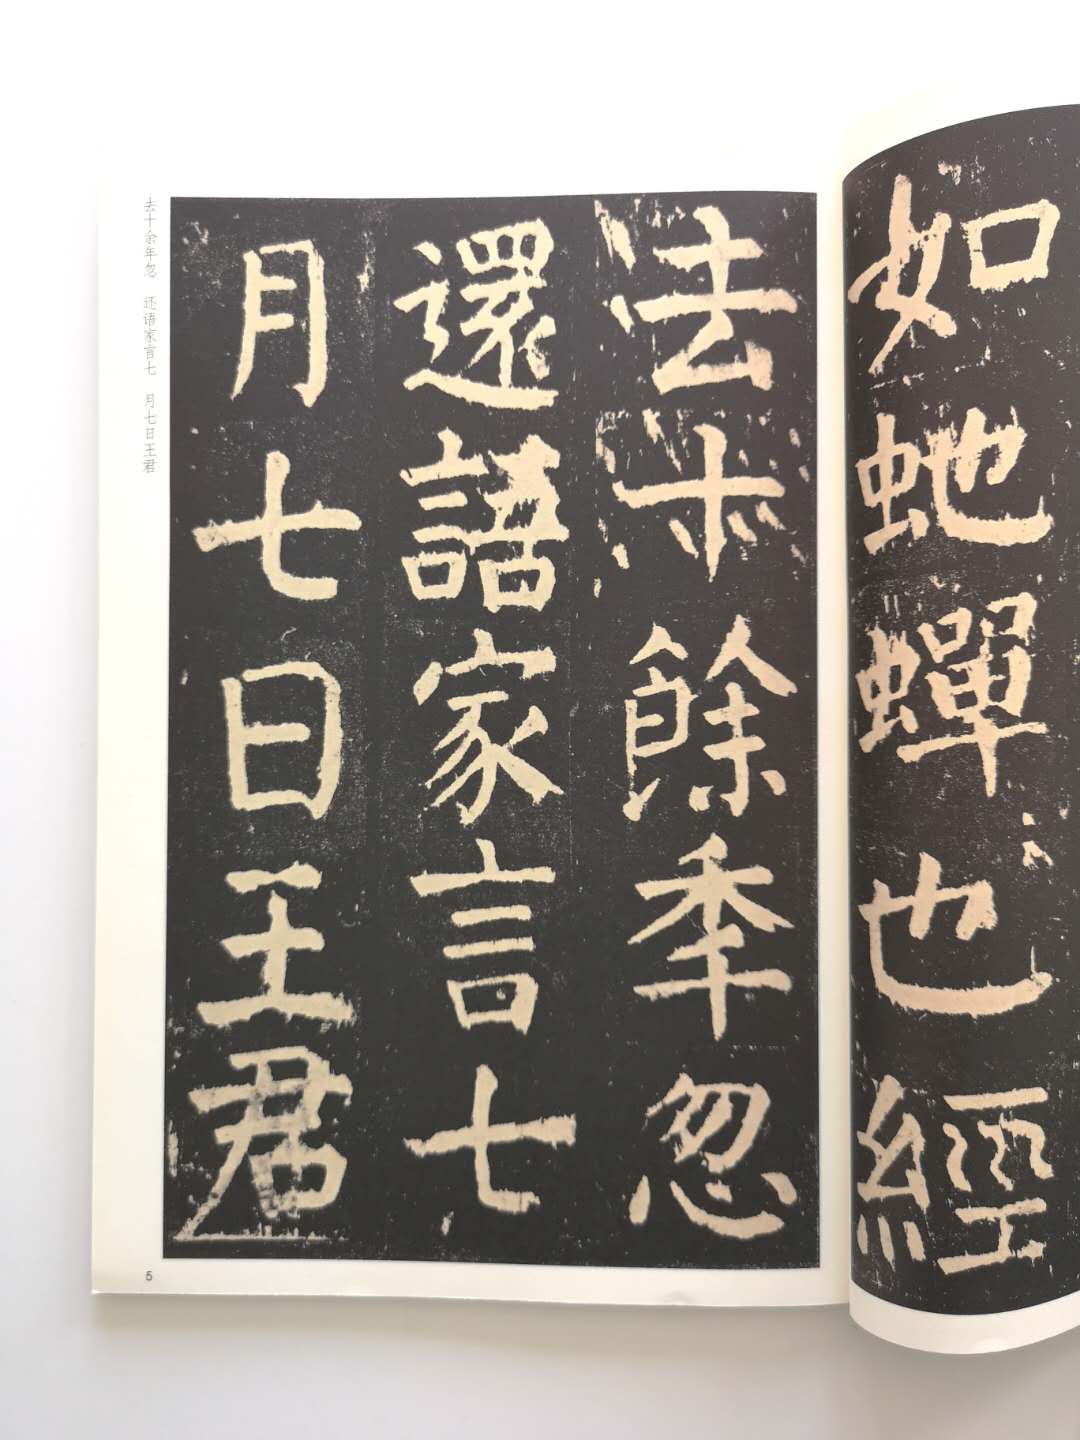 如虵蟬也經
法十餘年忽
還語家言七
月七日王君
去十余年忽　还语家言七　月七日王君
5